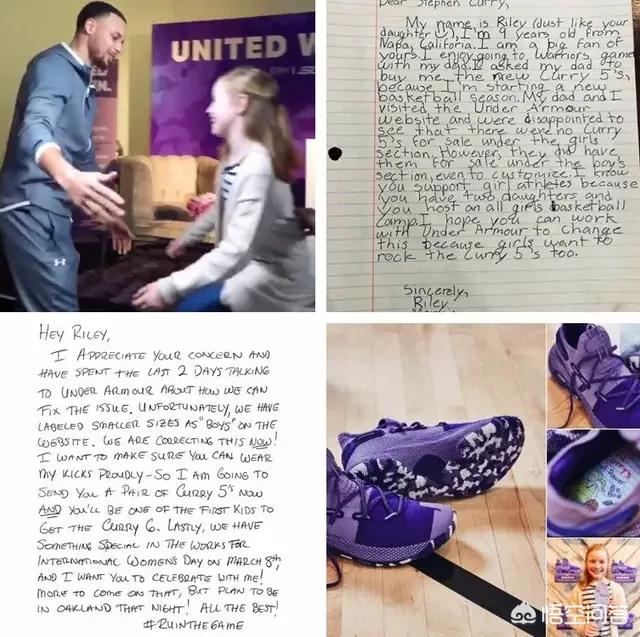 UNITED W
Dear Stephen Curry,
My name is Riley (just like your
daughter), I'm 9 years old from
Napa, California. I am a big fan of
yours. I enjoy going to Warriors games
with my dad. I asked my dad to
buy me the new Curry 5's,
because I'm starting a new
basketball season. My dad and I
visited the Under Armour
website and were disappointed to
see that there were no Curry
5's for sale under the girls
section. However, they did have
them for sale under the boy's
section, even to customize. I know
you support girl athletes because
you have two daughters and
you host an all girls basketball
camp. I hope you can work
with Under Armour to change
this because girls want to
rock the Curry 5's too.
Sincerely,
Riley
HEY RILEY,
I APPRECIATE YOUR CONCERN AND
HAVE SPENT THE LAST 2 DAYS TALKING
TO UNDER ARMOUR ABOUT HOW WE CAN
FIX THE ISSUE. UNFORTUNATELY, WE HAVE
LABELED SMALLER SIZES AS "BOYS" ON THE
WEBSITE. WE ARE CORRECTING THIS NOW!
I WANT TO MAKE SURE YOU CAN WEAR
MY KICKS PROUDLY - SO I AM GOING TO
SEND YOU A PAIR OF CURRY 5'S NOW
AND YOU'LL BE ONE OF THE FIRST KIDS TO
GET THE CURRY 6. LASTLY, WE HAVE
SOMETHING SPECIAL IN THE WORKS FOR
INTERNATIONAL WOMEN'S DAY ON MARCH 8th,
AND I WANT YOU TO CELEBRATE WITH ME!
MORE TO COME ON THAT, BUT PLAN TO BE
IN OAKLAND THAT NIGHT! ALL THE BEST!
#RUINTHEGAME
悟空问答